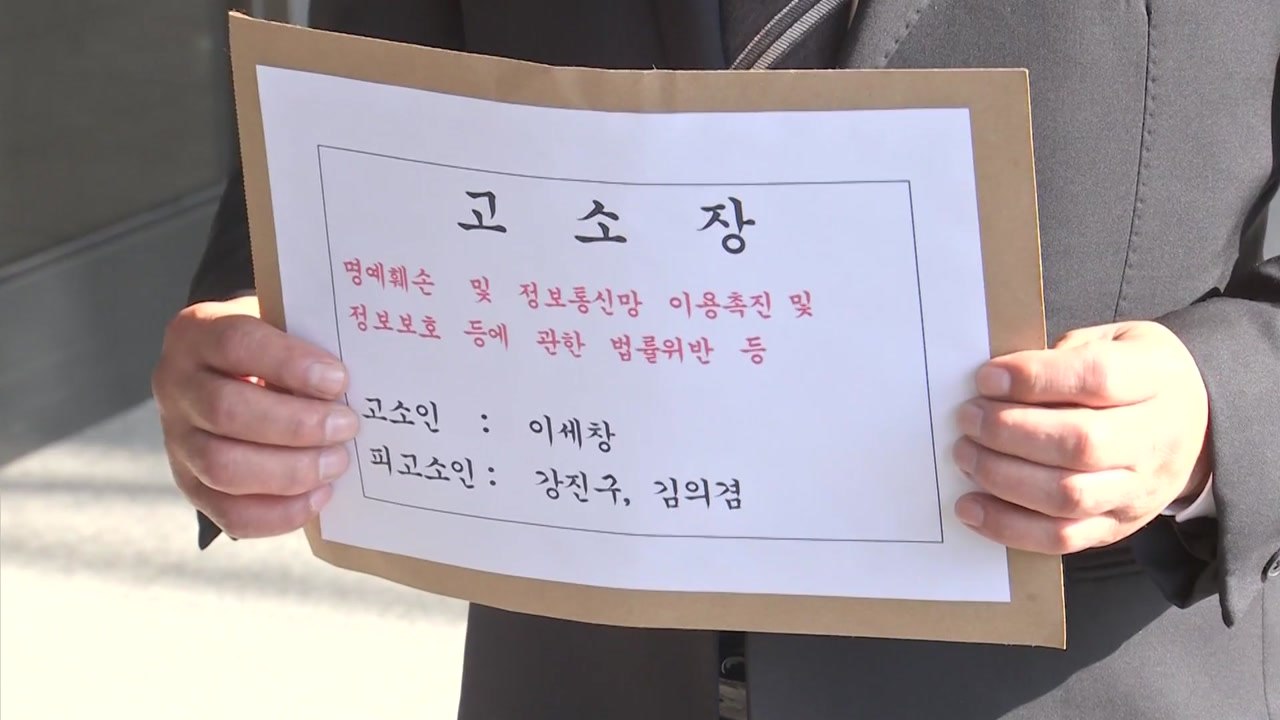 고 소 장
명예훼손 및 정보통신망 이용촉진 및
정보보호 등에 관한 법률위반 등
고소인 : 이세창
피고소인 : 강진구, 김의겸